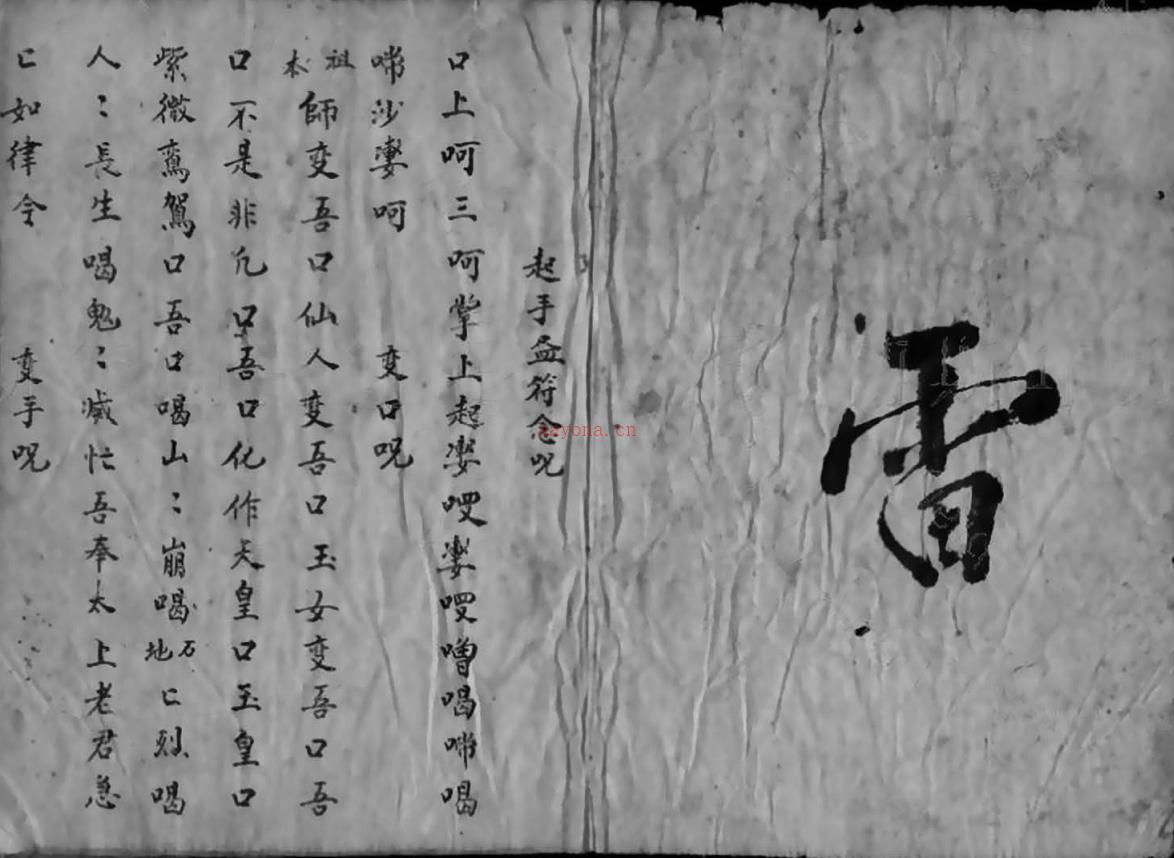 雷
起手並符念咒
口上呵三呵掌上起婆㗑婆㗑噜喝啼喝
啼沙婆呵 变口咒
祖本師变吾口仙人变吾口玉女变吾口吾
口不是非凡口吾口化作天皇口玉皇口
紫微鸾駕口吾口喝山〻崩喝石地匕烈喝
人〻長生喝鬼〻滅忙吾奉太上老君急
匕如律令 变手咒
kayona.cn